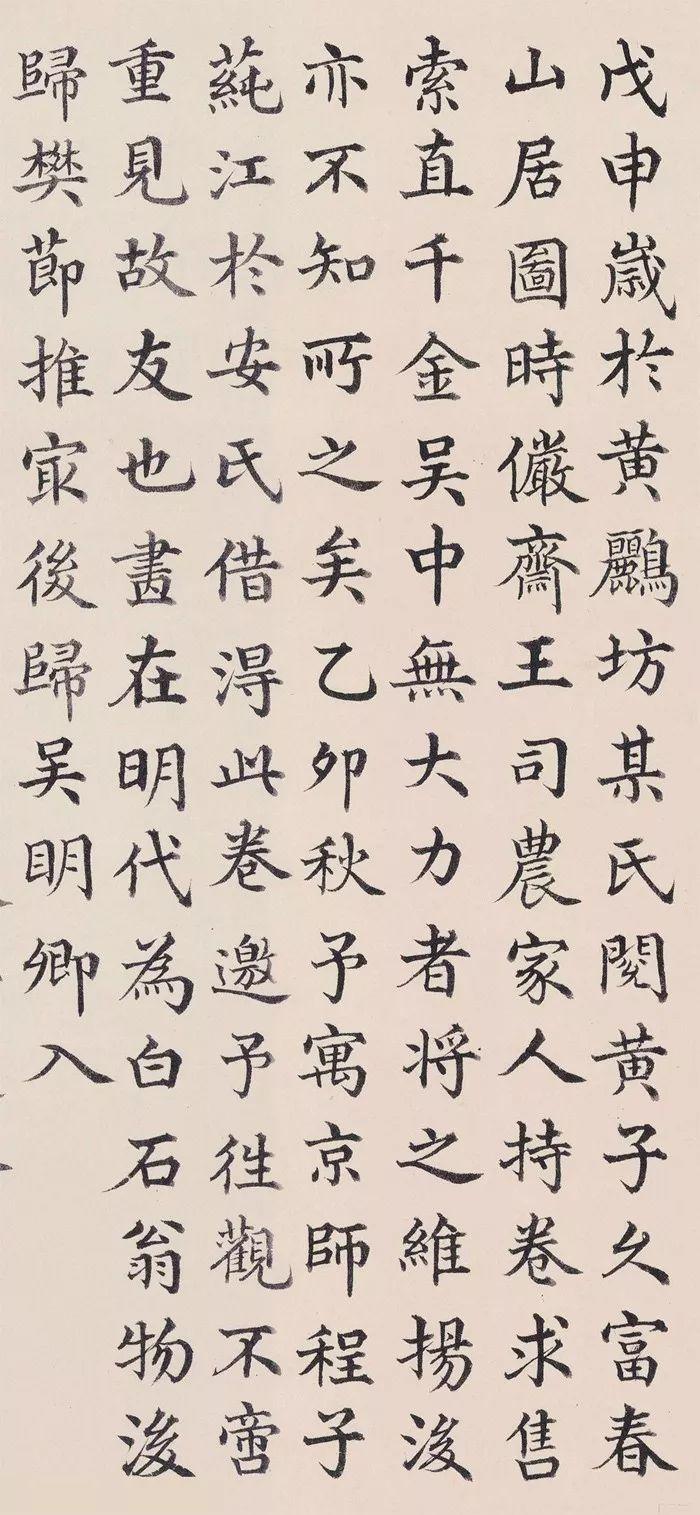 戊申嵗於黄鸝坊某氏閱黄子久富春
山居圖時儼齋王司農家人持卷求售
索直千金吴中無大力者将之維揚浚
亦不知所之矣乙卯秋予寓京師程子
蒓江於安氏借淂此卷邀予徃觀不啻
重見故友也畵在明代為白石翁物浚
歸樊節推冣後歸吴明卿入